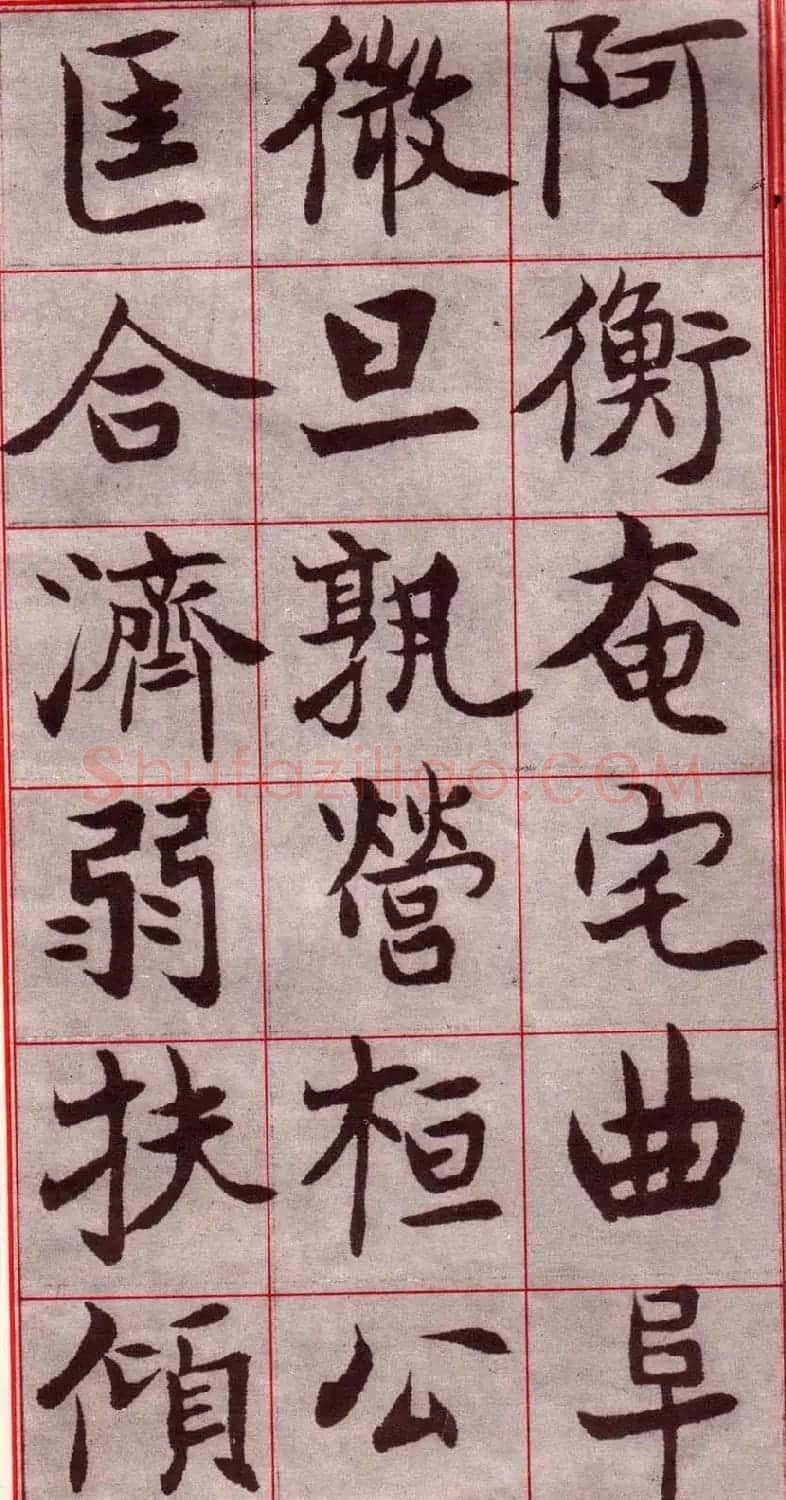 阿衡奄宅曲阜
微旦孰營桓公
匡合濟弱扶傾
Shufaziliao.COM